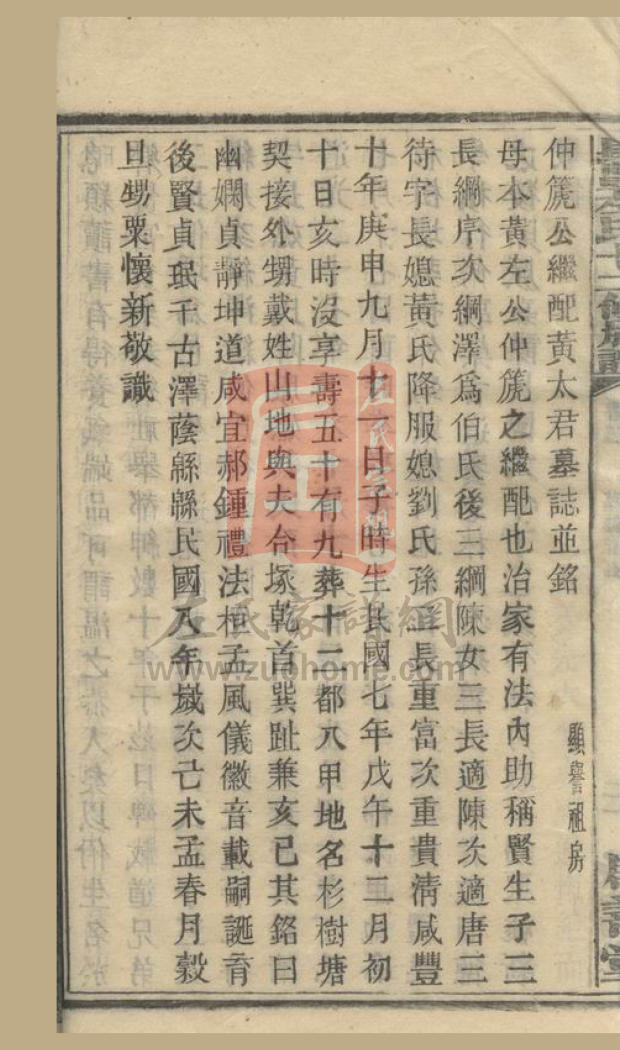 仲篪公繼配黃太君墓誌並銘
顯譽祖房
母本黃左公仲篪之繼配也治家有法內助稱賢生子三
長綱序次綱澤爲伯氏後三綱陳女三長適陳次適唐三
待字長媳黃氏降服媳劉氏孫二長重富次重貴清咸豐
十年庚申九月十一日子時生民國七年戊午十二月初
十日亥時沒享壽五十有九葬十二都八甲地名杉樹塘
契接外甥戴姓山地與夫合塚乾首巽趾兼亥已其銘曰
幽嫻貞靜坤道咸宜郝鍾禮法桓孟風儀徽音載嗣誕育
後賢貞珉千古澤蔭緜緜民國八年歲次己未孟春月穀
旦甥粟懷新敬識
左氏家譜網
www.zuohome.com